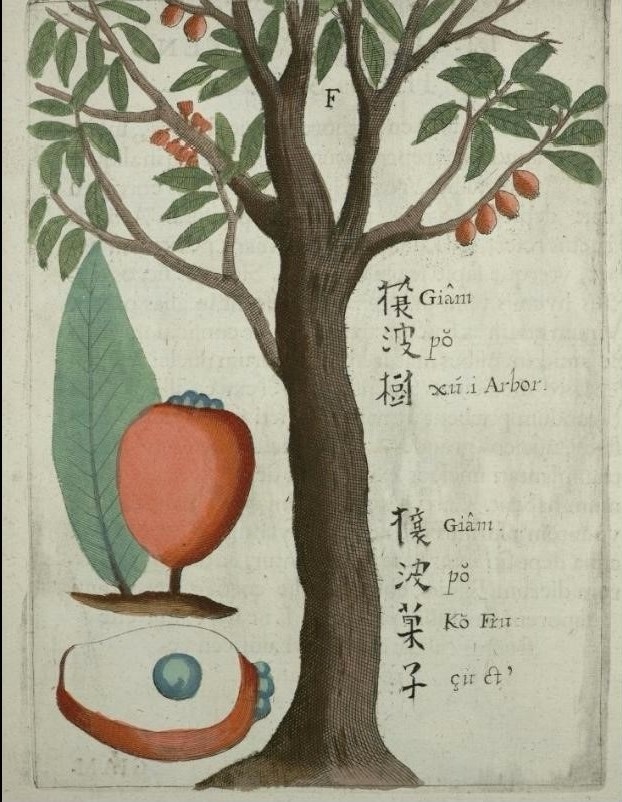 F
Giâm
波 pŏ
樹 xú.i Arbor.
Giâm.
波 pŏ
菓 Kŏ Fru
子 çu ct’